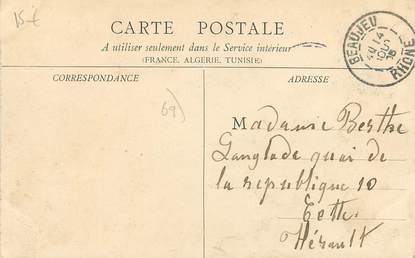 15€
CARTE POSTALE
A utiliser seulement dans le Service intérieur
(FRANCE, ALGÉRIE, TUNISIE)
CORRESPONDANCE
ADRESSE
BEAUJEU
14
RHONE
69)
Madame Berthe
Langlade quai de
la republique 10
Cette
Hérault